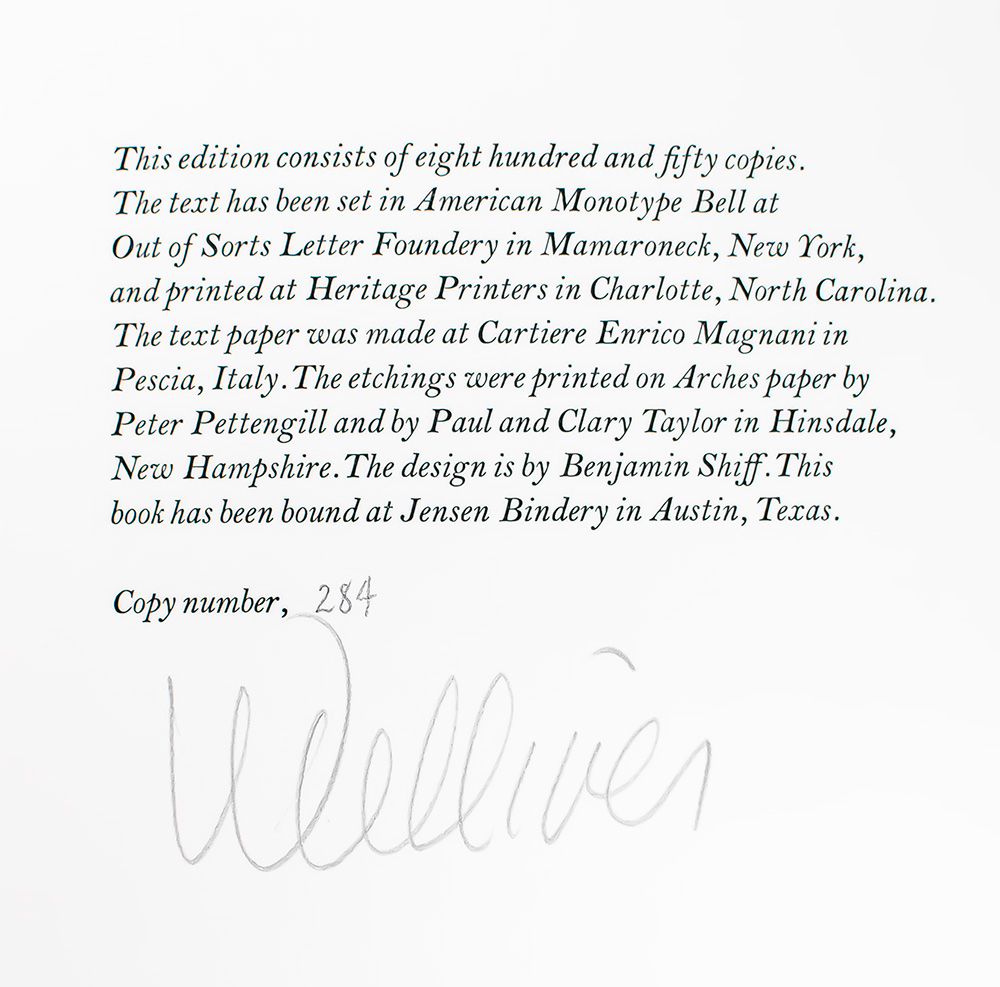 This edition consists of eight hundred and fifty copies.
The text has been set in American Monotype Bell at
Out of Sorts Letter Foundery in Mamaroneck, New York,
and printed at Heritage Printers in Charlotte, North Carolina.
The text paper was made at Cartiere Enrico Magnani in
Pescia, Italy. The etchings were printed on Arches paper by
Peter Pettengill and by Paul and Clary Taylor in Hinsdale,
New Hampshire. The design is by Benjamin Shiff. This
book has been bound at Jensen Bindery in Austin, Texas.
Copy number, 284
Welliver